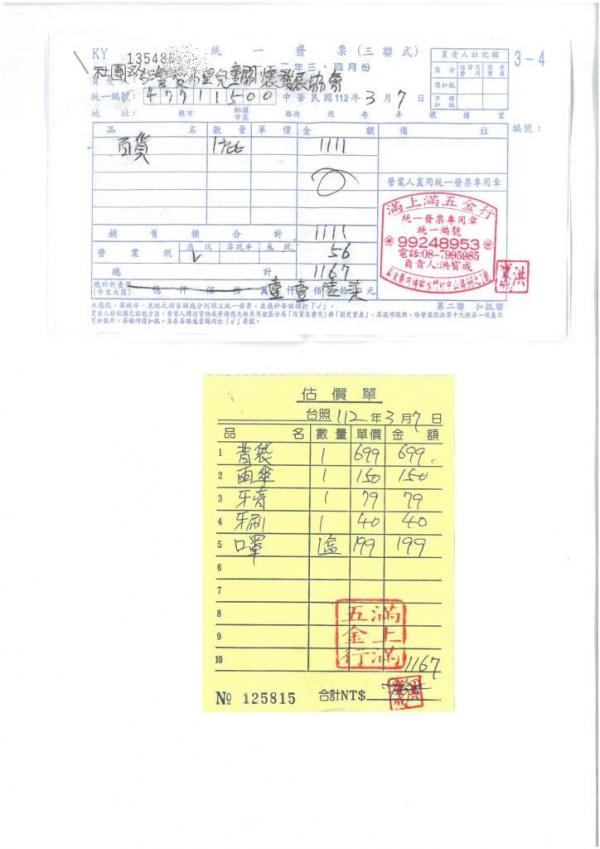 KY 13548
統一發票(三聯式)
二年三、四月份
3-4
買受人註記欄
區分
得扣抵
不得扣抵
統一編號: 47711500
中華民國112年3月7日
地址:
品名 數量 單價 金額 備註
編號:
百貨 1批 1111
營業人蓋用統一發票專用章
滿上滿五金行
統一發票專用章
統一編號
99248953
電話:08-7995985
負責人:洪寶成
銷售額合計 1111
營業稅 應稅 零稅率 免稅 56
√
總計 1167
總計新臺幣
(中文大寫)
億 仟 佰 拾 萬 仟 佰 拾 元
壹 壹 陸 柒
第二聯 扣抵聯
估價單
台照 112年3月7日
品名 數量 單價 金額
1 背袋 1 699 699
2 雨傘 1 150 150
3 牙膏 1 79 79
4 牙刷 1 40 40
5 口罩 1盒 199 199
6
7
8
9
10
滿上滿五金行
1167
№ 125815 合計NT$